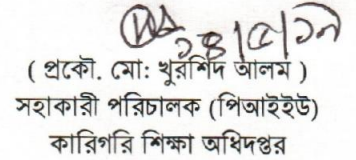 ২৪/৫/১৭
( প্রকৌ. মো: খুরশিদ আলম )
সহাকারী পরিচালক (পিআইইউ)
কারিগরি শিক্ষা অধিদপ্তর